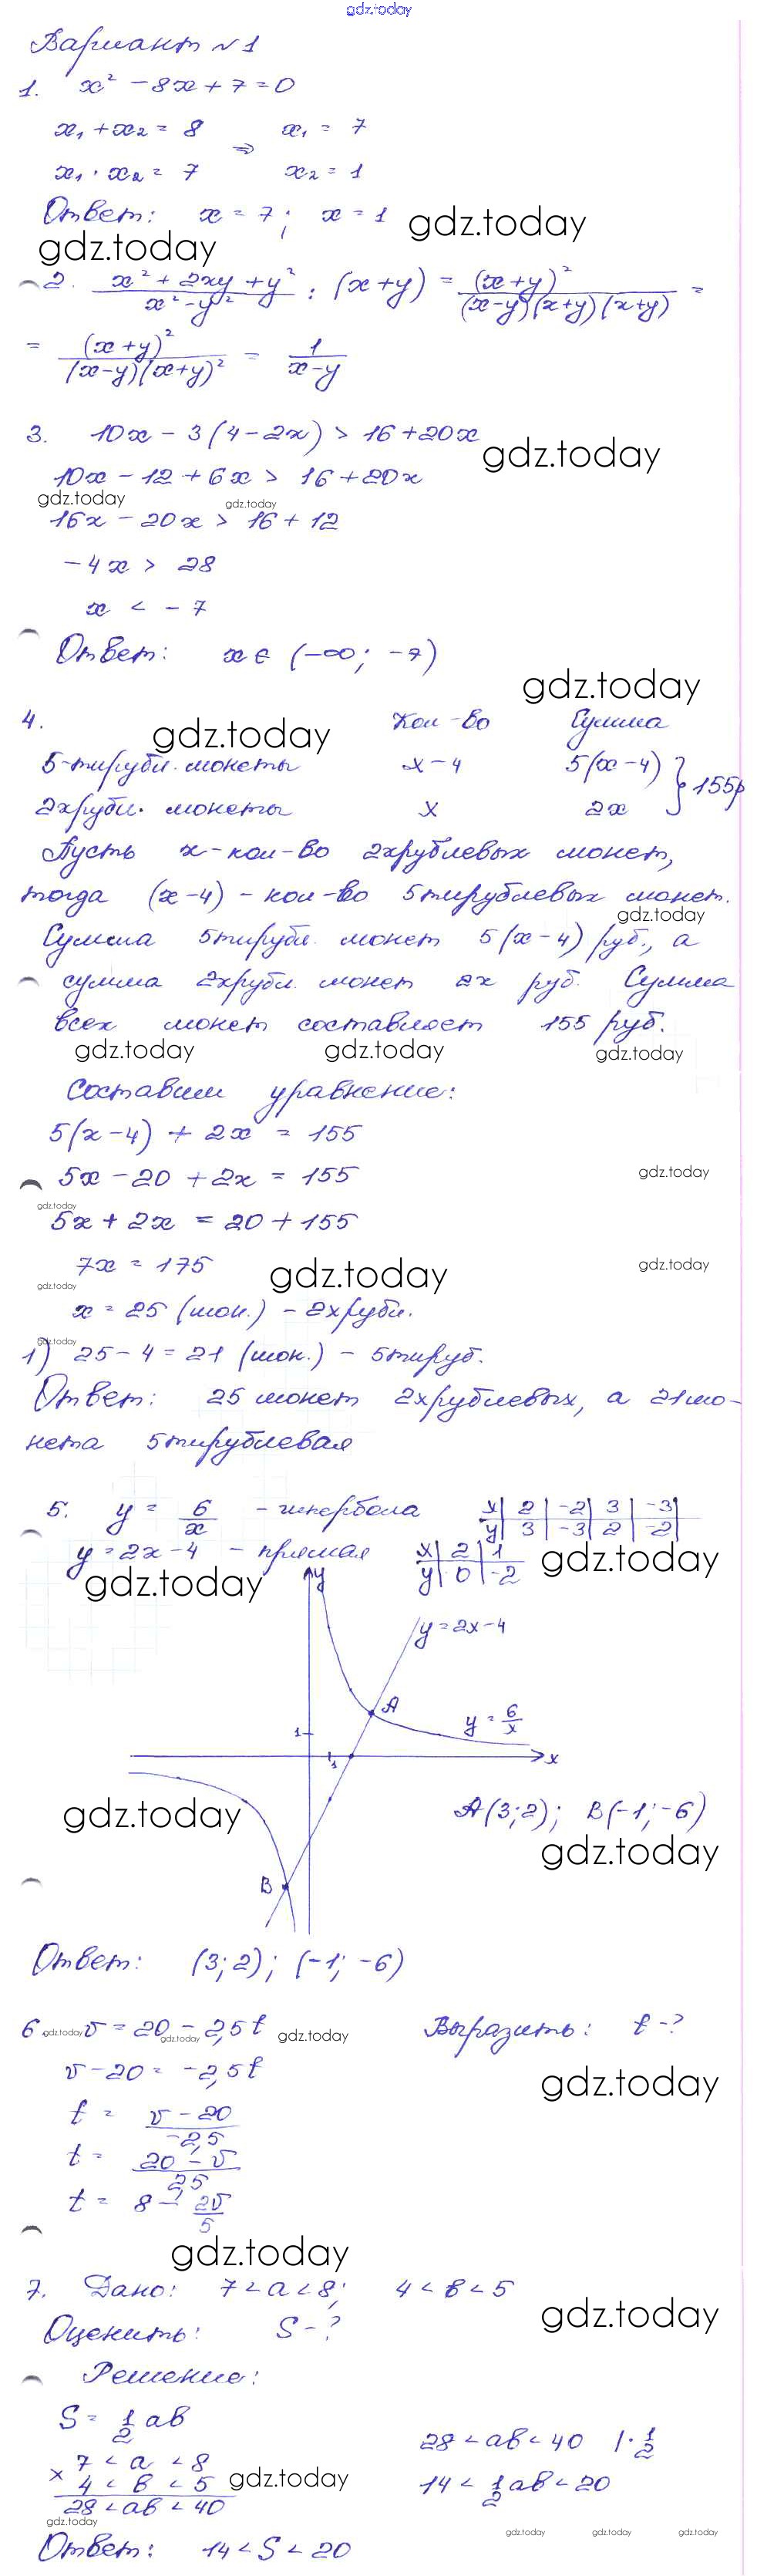 gdz.today
Вариант №1
1. x² - 8x + 7 = 0
x₁ + x₂ = 8 ⇒ x₁ = 7
x₁ · x₂ = 7 x₂ = 1
Ответ: x = 7; x = 1 gdz.today
gdz.today
2. (x² + 2xy + y²)/(x² - y²) : (x+y) = (x+y)²/((x-y)(x+y)(x+y)) =
= (x+y)²/((x-y)(x+y)²) = 1/(x-y)
3. 10x - 3(4-2x) > 16 + 20x
gdz.today
10x - 12 + 6x > 16 + 20x
gdz.today gdz.today
16x - 20x > 16 + 12
-4x > 28
x < -7
Ответ: x ∈ (-∞; -7)
gdz.today
4. gdz.today Кол-во Сумма
5-тирубл. монеты x-4 5(x-4) } 155р
2хрубл. монеты x 2x
Пусть x-кол-во 2хрублевых монет,
тогда (x-4) - кол-во 5тирублевых монет.
gdz.today
Сумма 5тирубл. монет 5(x-4) руб., а
сумма 2хрубл. монет 2x руб. Сумма
всех монет составляет 155 руб.
gdz.today gdz.today gdz.today
Составим уравнение:
5(x-4) + 2x = 155
5x - 20 + 2x = 155 gdz.today
gdz.today
5x + 2x = 20 + 155
7x = 175 gdz.today gdz.today
gdz.today
x = 25 (мон.) - 2хрубл.
gdz.today
1) 25 - 4 = 21 (мон.) - 5тируб.
Ответ: 25 монет 2хрублевых, а 21 мо-
нета 5тирублевая
5. y = 6/x - гипербола x| 2 | -2 | 3 | -3 |
y| 3 | -3 | 2 | -2 |
y = 2x - 4 - прямая x| 2 | 1
y| 0 | -2 gdz.today
gdz.today
y
y = 2x - 4
A
y = 6/x
1
1
x
gdz.today A(3;2); B(-1;-6)
gdz.today
B
Ответ: (3;2); (-1;-6)
6 gdz.today v = 20 - 2,5t Выразить: t - ?
gdz.today gdz.today
v - 20 = -2,5t
gdz.today
t = (v - 20)/(-2,5)
t = (20 - v)/2,5
t = 8 - 2v/5
gdz.today
7. Дано: 7 < a < 8; 4 < b < 5
gdz.today
Оценить: S - ?
Решение:
S = 1/2 ab
28 < ab < 40 | · 1/2
× 7 < a < 8
4 < b < 5 gdz.today 14 < 1/2 ab < 20
28 < ab < 40
gdz.today
gdz.today gdz.today gdz.today
Ответ: 14 < S < 20